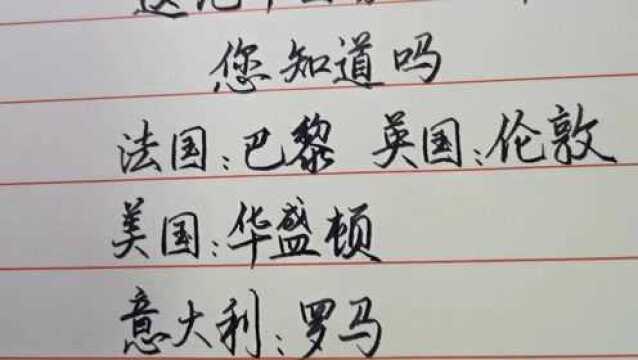 您知道吗
法国:巴黎 英国:伦敦
美国:华盛顿
意大利:罗马